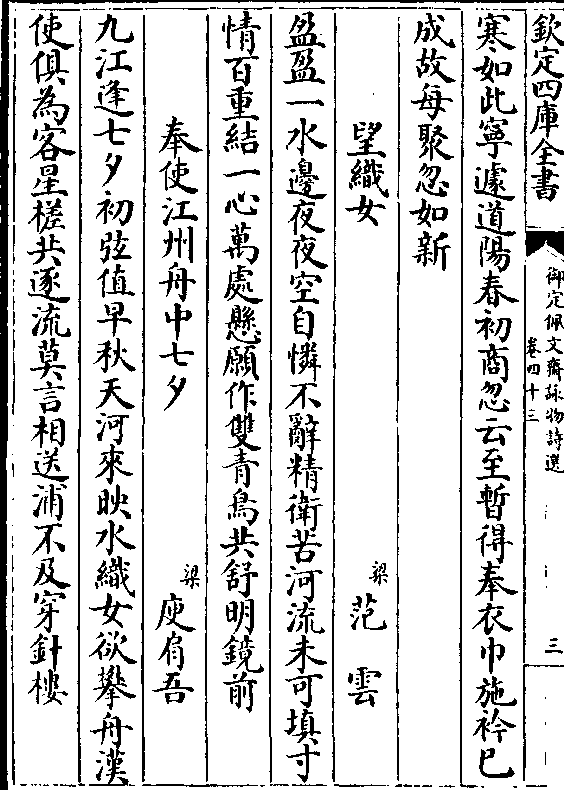 欽定四庫全書
御定佩文齋詠物詩選
卷四十三
三
寒如此寧遽道陽春初商忽云至暫得奉衣巾施衿已
成故每聚忽如新
望織女
梁
范雲
盈盈一水邊夜夜空自憐不辭精衛苦河流未可填寸
情百重結一心萬處懸願作雙青鳥共舒明鏡前
奉使江州舟中七夕
梁
庾肩吾
九江逢七夕初弦值早秋天河來映水織女欲攀舟漢
使俱為客星槎共逐流莫言相送浦不及穿針樓